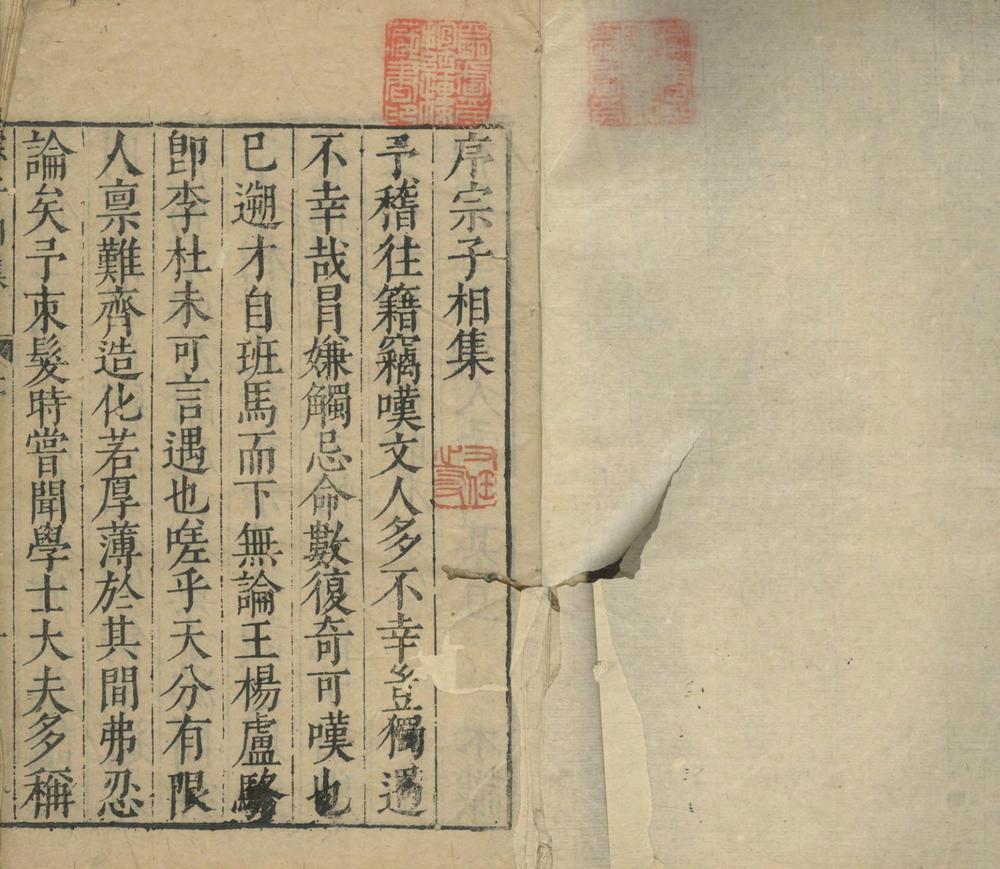 序宗子相集
予稽往籍竊嘆文人多不幸豈獨遇
不幸哉冒嫌觸忌命數復奇可嘆也
已遡才自班馬而下無論王楊盧駱
卽李杜未可言遇也嗟乎天分有限
人禀難齊造化若厚薄於其間弗忍
論矣予束髮時嘗聞學士大夫多稱